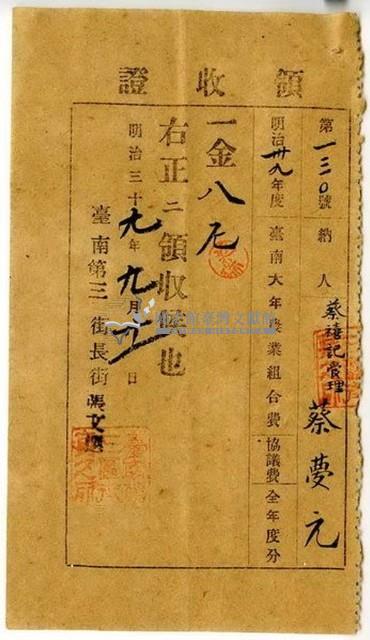 領收證
第一三〇號 納人 蔡禧記管理 蔡夢元
明治卅九年度 臺南大年 業組合費 協議費 全年度分
一金八元
右正ニ領收候也
明治三十九年九月 日
臺南第三街長街張文選